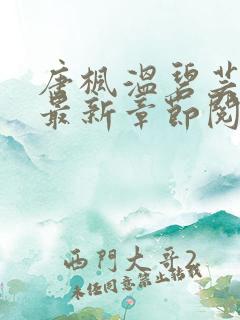 唐楓溫碧芸
最新章節閱
西門大哥2
未經同意禁止轉載